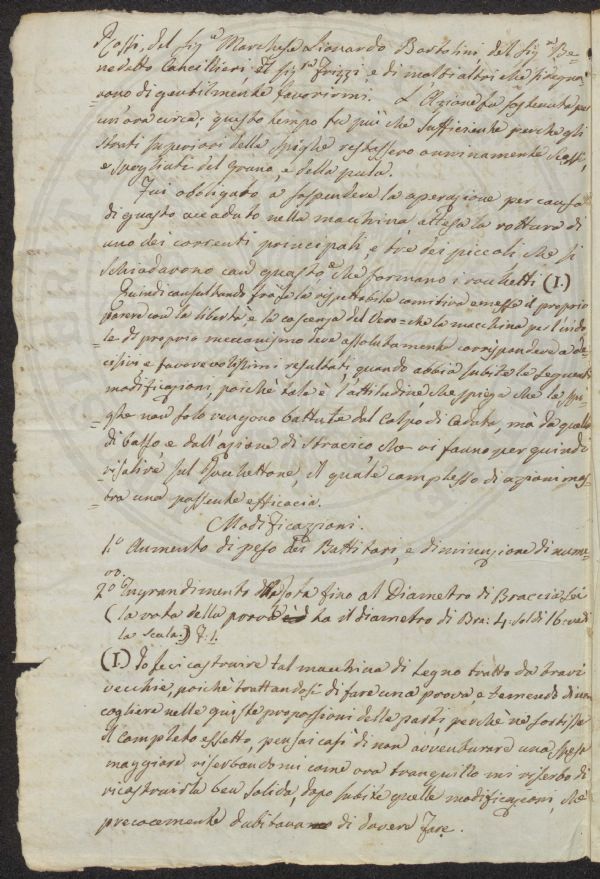 Rossi, del Sig.r Marchese Lionardo Bartolini del Sig.r Be-
nedetto Cancillieri Il Sig.r Frizzi e di molti altri che si degna
rono di gentilmente favorirmi. L'Azione fu sostenuta per
un'ora circa; questo tempo fu più che sufficiente perchè gli
strati superiori delle spighe restassero onninamente
e spogliati del grano, e della pula.
Fui obbligato a sospendere la operazione per causa
di guasto accaduto nella macchina, attesa la rottura di
uno dei correnti principali, e tre dei piccoli che si
schiodarono con questo che formano i rocchetti (I.)
Quindi consultando frà se la rispettabile comitiva emesse il proprio
parere con la libertà, e la coscenza del Vero = che la macchina per l'indo
le di proprio meccanismo deve assolutamente corrispondere a de
cisivi e favorevolissimi resultati, quando abbia subite le seguenti
modificazioni, poichè tale è l'attitudine che spiega che le spi
ghe non solo vengono battute dal Colpo di Caduta, mà da quello
di basso e dall'azione di stracico che vi fanno per quindi
risalire sul Rocchettone, Il quale complesso di azioni mos
tra una possente efficacia.
Modificazioni.
1.o Aumento di peso dei Battitori, e diminuzione di nume
ro.
2.o Ingrandimento della rota fino al Diametro di Braccia sei
(la rota della prova ha il diametro di Bra: 4. soldi 16: vedi
la Scala:) T: 1.
(I.) Io feci costruire tal macchina di Legno tratto da travi
vecchie, poichè trattandosi di fare una prova, e temendo di non
cogliere nelle giuste proporzioni delle parti, perchè ne sortisse
il completo effetto, pensai così di non avventurare una spesa
maggiore riserbandomi come ora tranquillo mi riserbo di
ricostruirla ben solida, dopo subite quelle modificazioni, che
precocemente dubitavo di dovere fare.